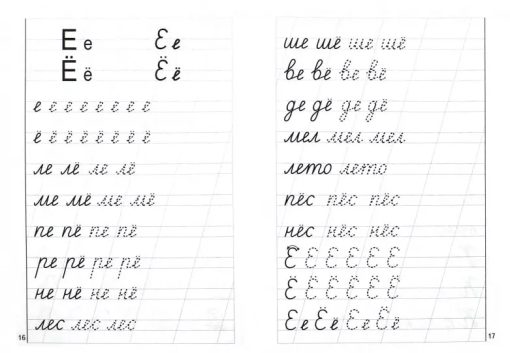 Е е Е е
Ё ё Ё ё
е ё ё ё ё ё ё ё
ё ё ё ё ё ё ё ё
ле лё ле лё
ме мё ме мё ме мё
пе пё пе пё
ре рё ре рё
не нё не нё
лес лес лес
16
ше шё ше шё
ве вё ве вё
де дё де дё
мел мел мел
лето лето
пёс пёс пёс
нёс нёс нёс
Е Е Е Е Е Е
Ё Ё Ё Ё Ё Ё
Ее Ёё Ее Ёё
17